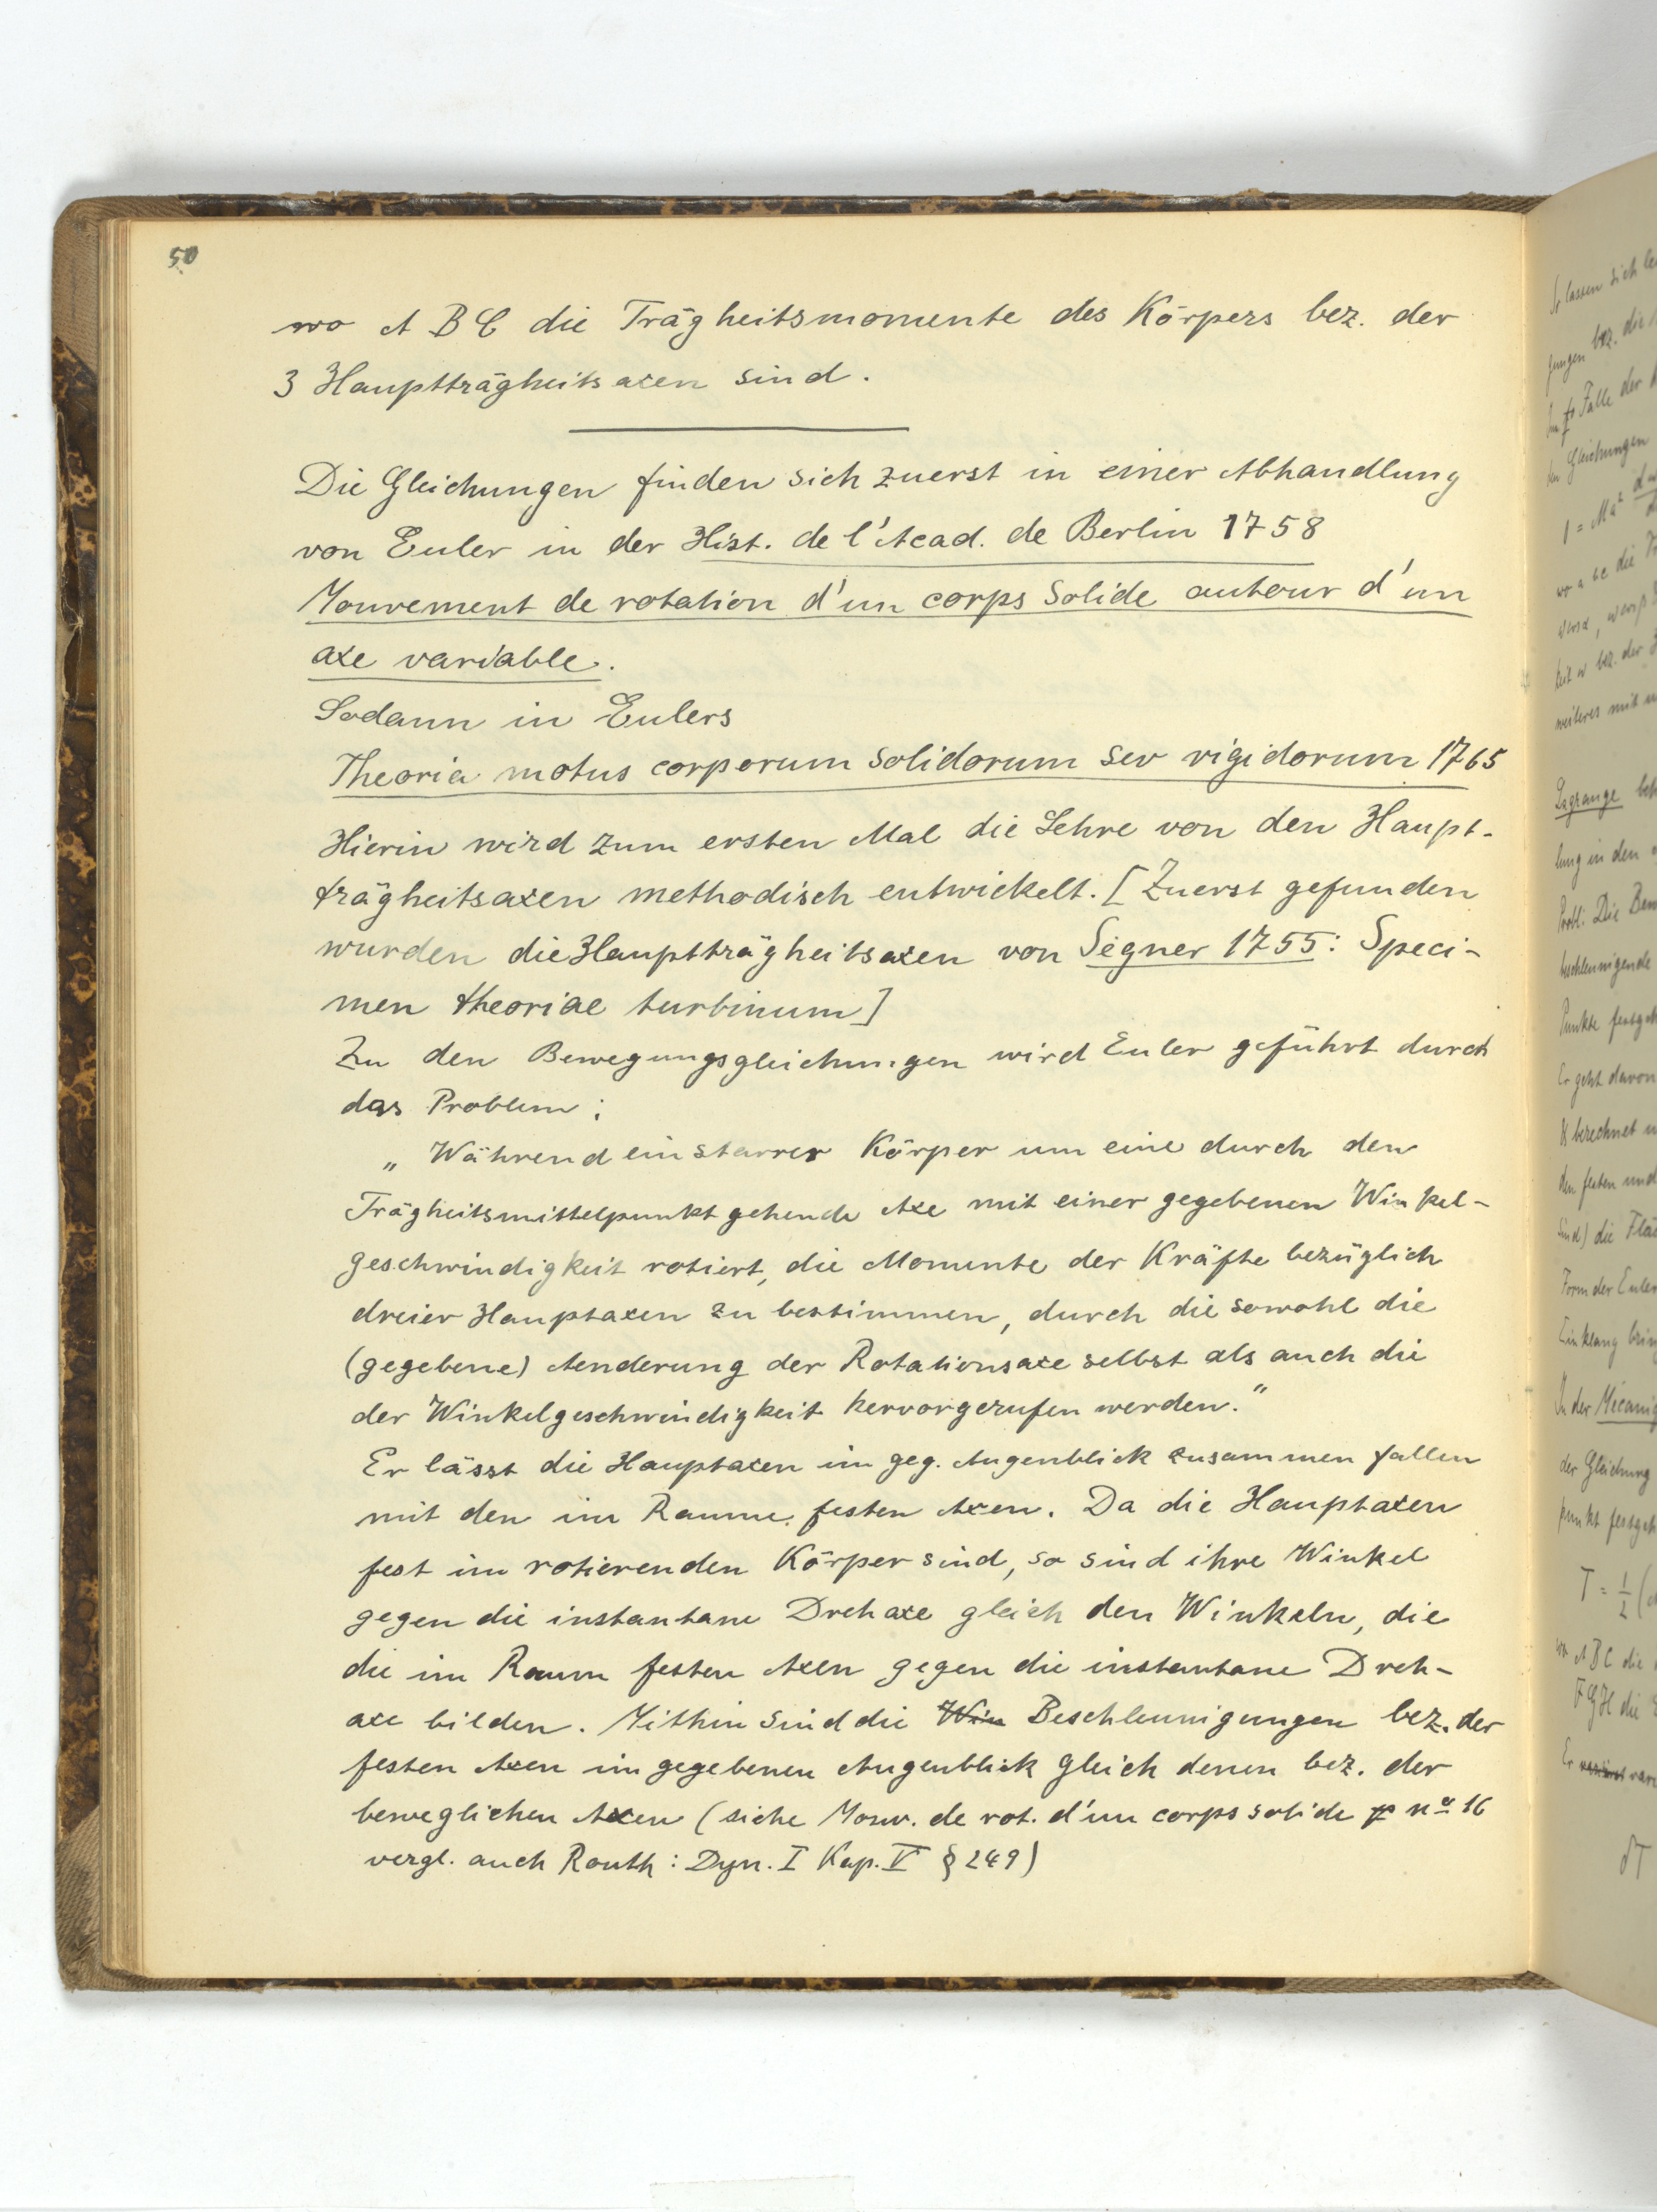 50
wo A B C die Trägheitsmomente des Körpers bez. der
3 Hauptträgheitsaxen sind.
Die Gleichungen finden sich zuerst in einer Abhandlung
von Euler in der Hist. de l'Acad. de Berlin 1758
Mouvement de rotation d'un corps solide autour d'un
axe variable.
Sodann in Eulers
Theoria motus corporum solidorum seu rigidorum 1765
Hierin wird zum ersten Mal die Lehre von den Haupt-
trägheitsaxen methodisch entwickelt. [Zuerst gefunden
wurden die Hauptträgheitsaxen von Segner 1755: Speci-
men theoriae turbinum]
Zu den Bewegungsgleichungen wird Euler geführt durch
das Problem:
„Während ein starrer Körper um eine durch den
Trägheitsmittelpunkt gehende Axe mit einer gegebenen Winkel-
geschwindigkeit rotiert, die Momente der Kräfte bezüglich
dreier Hauptaxen zu bestimmen, durch die sowohl die
(gegebene) Aenderung der Rotationsaxe selbst als auch die
der Winkelgeschwindigkeit hervorgerufen werden."
Er lässt die Hauptaxen im geg. Augenblick zusammen fallen
mit den im Raume festen Axen. Da die Hauptaxen
fest im rotierenden Körper sind, so sind ihre Winkel
gegen die instantane Drehaxe gleich den Winkeln, die
die im Raum festen Axen gegen die instantane Dreh-
axe bilden. Mithin sind die Win Beschleunigungen bez. der
festen Axen im gegebenen Augenblick gleich denen bez. der
beweglichen Axen (siehe Mouv. de rot. d'un corps solide nº 16
vergl. auch Routh: Dyn. I Kap. V § 249)
lassen sich
gungen bez. die
Falle der
Gleichungen
wo a b c die
weiteres mit
Lagrange
lung in den
Probl: Die
beschleunigende
Punkte
Er geht davon
& berechnet
den festen und
sind) die
Form der Euler
Einklang
In der
der Gleichung
punkt
T = 1/2 (
wo A B C die
F G H die
Er
δT